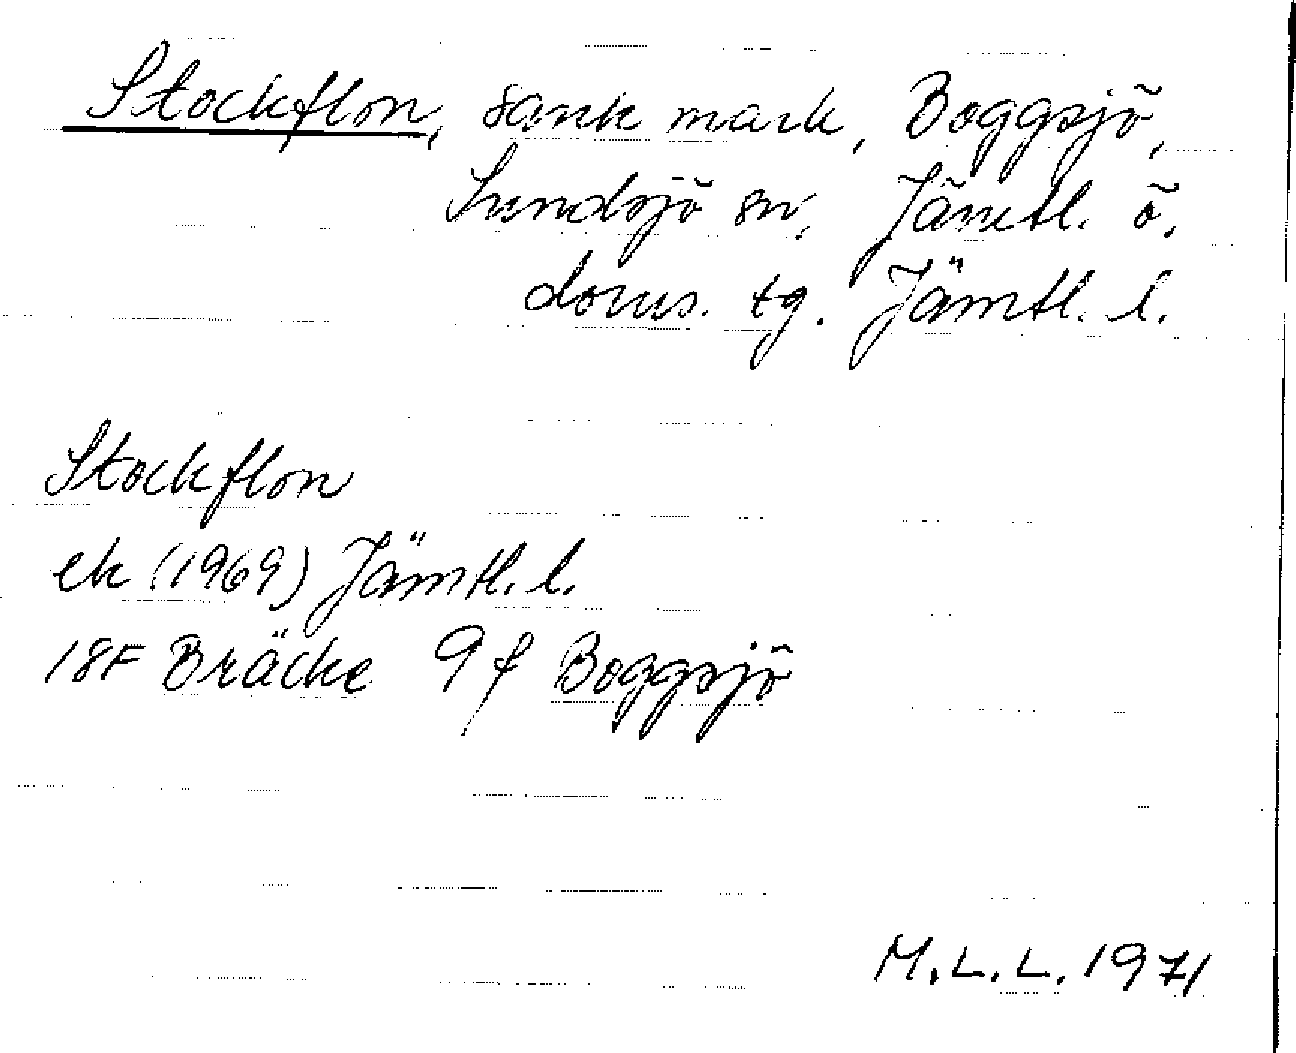 Stockflon, sank mark, Boggsjö,
Sundsjö sn, Jämtl. ö.
doms. tg. Jämtl. l.
Stockflon
ek (1969) Jämtl. l.
18F Bräcke 9f Boggsjö
M.L.L. 1971